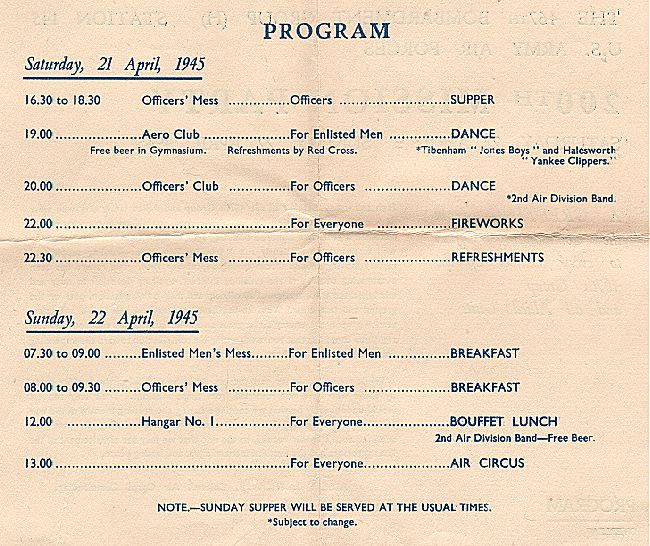 PROGRAM
Saturday, 21 April, 1945
16.30 to 18.30 Officers' Mess ............Officers ......................SUPPER
19.00 .................Aero Club .................For Enlisted Men ............DANCE
Free beer in Gymnasium. Refreshments by Red Cross. *Tibenham "Jones Boys" and Halesworth
"Yankee Clippers."
20.00 .................Officers' Club ............For Officers .................DANCE
*2nd Air Division Band.
22.00 ..............................................For Everyone................FIREWORKS
22.30 .................Officers' Mess ............For Officers .................REFRESHMENTS
Sunday, 22 April, 1945
07.30 to 09.00 .........Enlisted Men's Mess.........For Enlisted Men ............BREAKFAST
08.00 to 09.30 .........Officers' Mess ............For Officers .................BREAKFAST
12.00 ..............Hangar No. 1..................For Everyone................BOUFFET LUNCH
2nd Air Division Band—Free Beer.
13.00 ..............................................For Everyone................AIR CIRCUS
NOTE.—SUNDAY SUPPER WILL BE SERVED AT THE USUAL TIMES.
*Subject to change.
THE 467TH BOMBARDMENT GROUP (H) STATION 145
U.S. ARMY AIR FORCES
200TH MISSION PARTY
PROGRAM